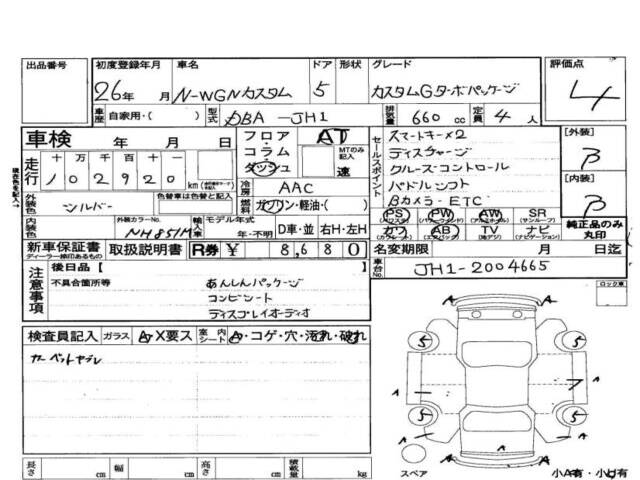 出品番号 初度登録年月 車名 ドア 形状 グレード 評価点
26年 月 N-WGNカスタム 5 カスタムGターボパッケージ 4
車歴 自家用・( ) 型式 DBA-JH1 排気量 660 cc 定員 4人
車検 年 月 日 フロア・コラム・ダッシュ AT MTのみ記入 速
セールスポイント
スマートキー×2
ディスチャージ
クルーズコントロール
パドルシフト
Bカメラ-ETC
[外装] B
[内装] B
純正品のみ丸印
走行 十万千百十一
102920 km
冷房 AAC
燃料 ガソリン・軽油・( )
外装色 シルバー 色替車は色替と記入
内装色 外装カラーNo. NH851M 輸入車 モデル年式 年・不明 D車・並 右H・左H
PS PW AW SR
(パワステ) (パワーウィンド) (アルミホイル) (サンルーフ)
カワ AB TV ナビ
(カワシート) (エアバッグ) (テレビ) (ナビゲーション)
新車保証書 取扱説明書 R券 ¥ 8,680 名変期限 月 日迄
ディーラー捺印あるもの
車台No. JH1-2004665
注意事項
後日品【 】
不具合箇所等
あんしんパッケージ
コンビシート
ディスプレイオーディオ
ロック車
検査員記入 ガラス A・X要ス 室内シート A・コゲ・穴・汚れ・破れ
カーペットヨゴレ
A A
5 5
A A
A 7
5 5
A
スペア 小A有・小U有
長さ cm 幅 cm 高さ cm 積載量 kg